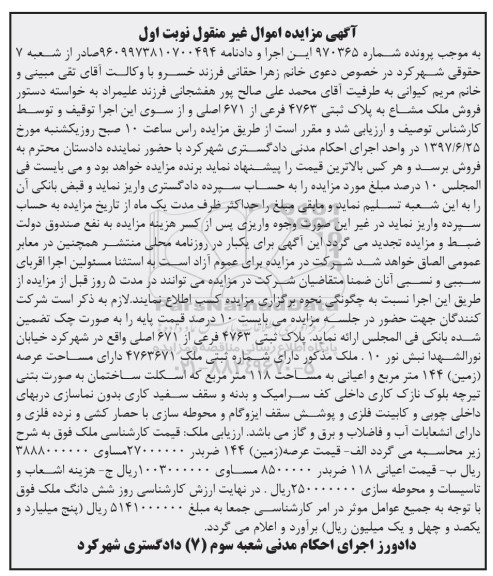 آگهی مزایده اموال غیر منقول نوبت اول
به موجب پرونده شماره ۹۷۰۳۶۵ این اجرا و دادنامه ۹۶۰۹۹۷۳۸۱۰۷۰۰۴۹۴صادر از شعبه ۷
حقوقی شهرکرد در خصوص دعوی خانم زهرا حقانی فرزند خسرو با وکالت آقای تقی مبینی و
خانم مریم کیوانی به طرفیت آقای محمد علی صالح پور هفشجانی فرزند علیمراد به خواسته دستور
فروش ملک مشاع به پلاک ثبتی ۴۷۶۳ فرعی از ۶۷۱ اصلی و از سوی این اجرا توقیف و توسط
کارشناس توصیف و ارزیابی شد و مقرر است از طریق مزایده راس ساعت ۱۰ صبح روزیکشنبه مورخ
۱۳۹۷/۶/۲۵ در واحد اجرای احکام مدنی دادگستری شهرکرد با حضور نماینده دادستان محترم به
فروش برسد و هر کس بالاترین قیمت را پیشنهاد نماید برنده مزایده خواهد بود و می بایست فی
المجلس ۱۰ درصد مبلغ مورد مزایده را به حساب سپرده دادگستری واریز نماید و قبض بانکی آن
را به این شعبه تسلیم نماید و مابقی مبلغ را حداکثر ظرف مدت یک ماه از تاریخ مزایده به حساب
سپرده واریز نماید در غیر این صورت وجوه واریزی پس از کسر هزینه مزایده به نفع صندوق دولت
ضبط و مزایده تجدید می گردد این آگهی برای یکبار در روزنامه محلی منتشر همچنین در معابر
عمومی الصاق خواهد شد شرکت در مزایده برای عموم آزاد است به استثنا مسئولین اجرا اقربای
سببی و نسبی آنان ضمنا متقاضیان شرکت در مزایده می توانند در مدت ۵ روز قبل از مزایده از
طریق این اجرا نسبت به چگونگی نحوه برگزاری مزایده کسب اطلاع نمایند.لازم به ذکر است شرکت
کنندگان جهت حضور در جلسه مزایده می بایست ۱۰ درصد قیمت پایه را به صورت چک تضمین
شده بانکی فی المجلس ارائه نمایند. پلاک ثبتی ۴۷۶۳ فرعی از ۶۷۱ اصلی واقع در شهرکرد خیابان
نورالشهدا نبش نور ۱۰ . ملک مذکور دارای شماره ثبتی ملک ۴۷۶۳۶۷۱ دارای مساحت عرصه
(زمین) ۱۴۴ متر مربع و اعیانی به مساحت ۱۱۸ متر مربع که اسکلت ساختمان به صورت بتنی
تیرچه بلوک نازک کاری داخلی کف سرامیک و بدنه و سقف سفید کاری بدون نماسازی دربهای
داخلی چوبی و کابینت فلزی و پوشش سقف ایزوگام و محوطه سازی با حصار کشی و نرده فلزی و
دارای انشعابات آب و فاضلاب و برق و گاز می باشد. ارزیابی ملک: قیمت کارشناسی ملک فوق به شرح
زیر محاسبه می گردد الف- قیمت عرصه(زمین) ۱۴۴ ضربدر ۲۷۰۰۰۰۰۰مساوی ۳۸۸۸۰۰۰۰۰۰
ریال ب- قیمت اعیانی ۱۱۸ ضربدر ۸۵۰۰۰۰۰ مساوی ۱۰۰۳۰۰۰۰۰۰ریال ج- هزینه اشعاب و
تاسیسات و محوطه سازی ۲۵۰۰۰۰۰۰۰ریال . در نهایت ارزش کارشناسی روز شش دانگ ملک فوق
با توجه به جمیع عوامل موثر در امر کارشناسی جمعا به مبلغ ۵۱۴۱۰۰۰۰۰۰ ریال (پنج میلیارد و
یکصد و چهل و یک میلیون ریال) برآورد و اعلام می گردد.
دادورز اجرای احکام مدنی شعبه سوم (۷) دادگستری شهرکرد
ParsNamadData
۰۲۱-۸۸۳۴۹۶۷۰-۵